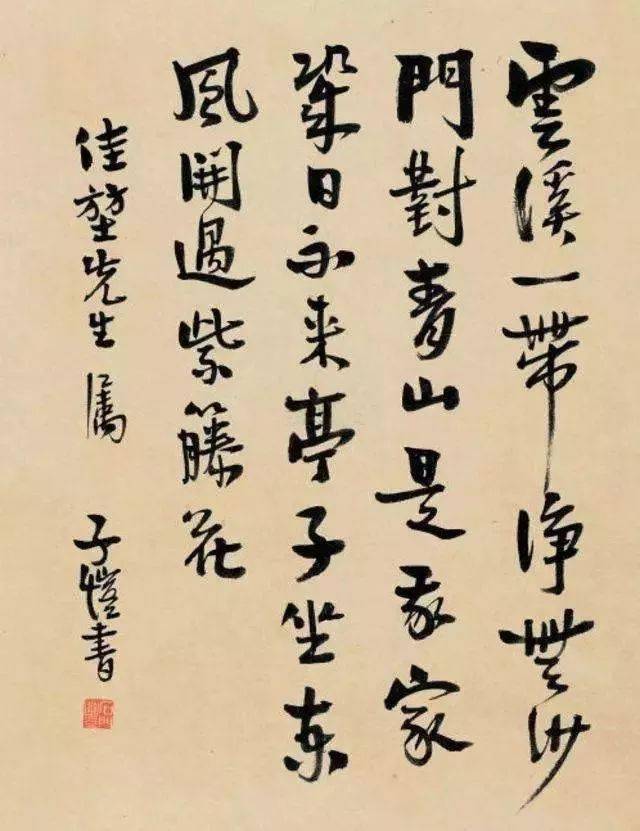 雲溪一帶淨無沙
門對青山是我家
幾日不來亭子坐東
風開過紫籐花
佳先生屬 子愷書